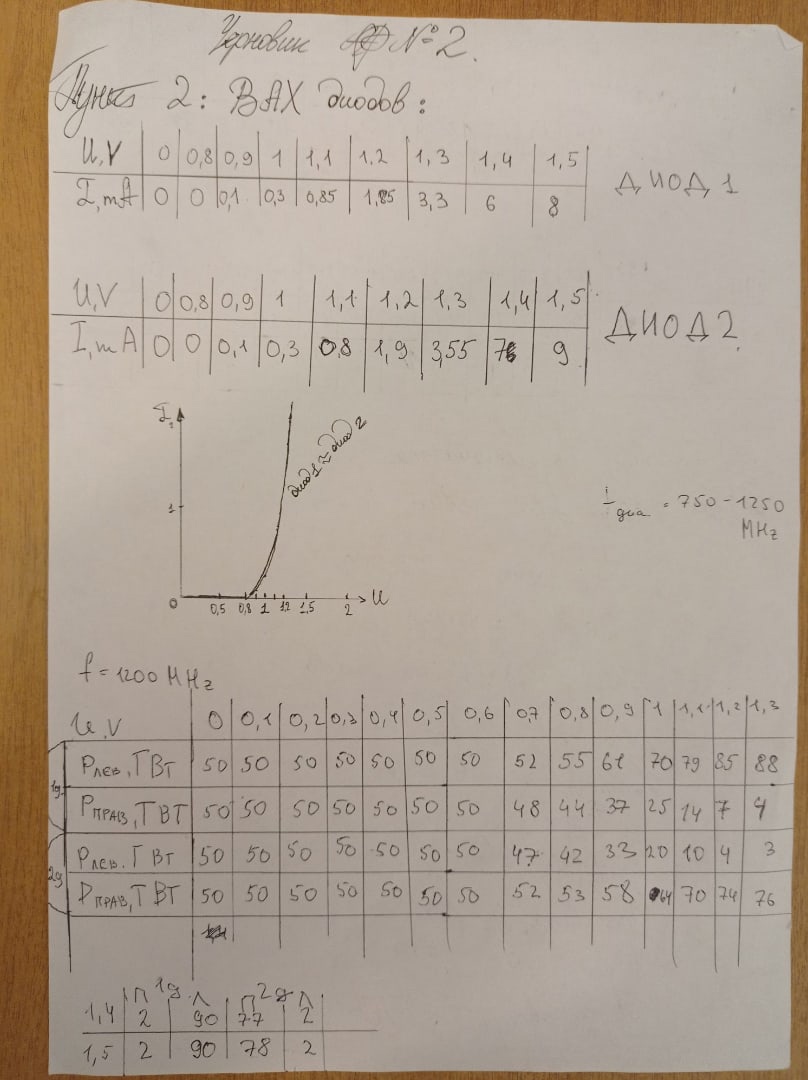 Черновик №2.
Пункт 2: ВАХ диодов:
U,V 0 0,8 0,9 1 1,1 1,2 1,3 1,4 1,5
I,mA 0 0 0,1 0,3 0,85 1,85 3,3 6 8
ДИОД 1
U,V 0 0,8 0,9 1 1,1 1,2 1,3 1,4 1,5
I,mA 0 0 0,1 0,3 0,8 1,9 3,55 7 9
ДИОД 2
I,
диод 1 ≈ диод 2
1
0 0,5 0,8 1 1,2 1,5 2 U
fдиа = 750 - 1250
MHz
f = 1200 MHz
U,V 0 0,1 0,2 0,3 0,4 0,5 0,6 0,7 0,8 0,9 1 1,1 1,2 1,3
1д
Рлев, ГВт 50 50 50 50 50 50 50 52 55 61 70 79 85 88
Рправ, ГВТ 50 50 50 50 50 50 50 48 44 37 25 14 7 4
2д
Рлев. ГВт 50 50 50 50 50 50 50 47 42 33 20 10 4 3
Рправ, ГВТ 50 50 50 50 50 50 50 52 53 58 64 70 74 76
1д 2д
П Л П Л
1,4 2 90 77 2
1,5 2 90 78 2